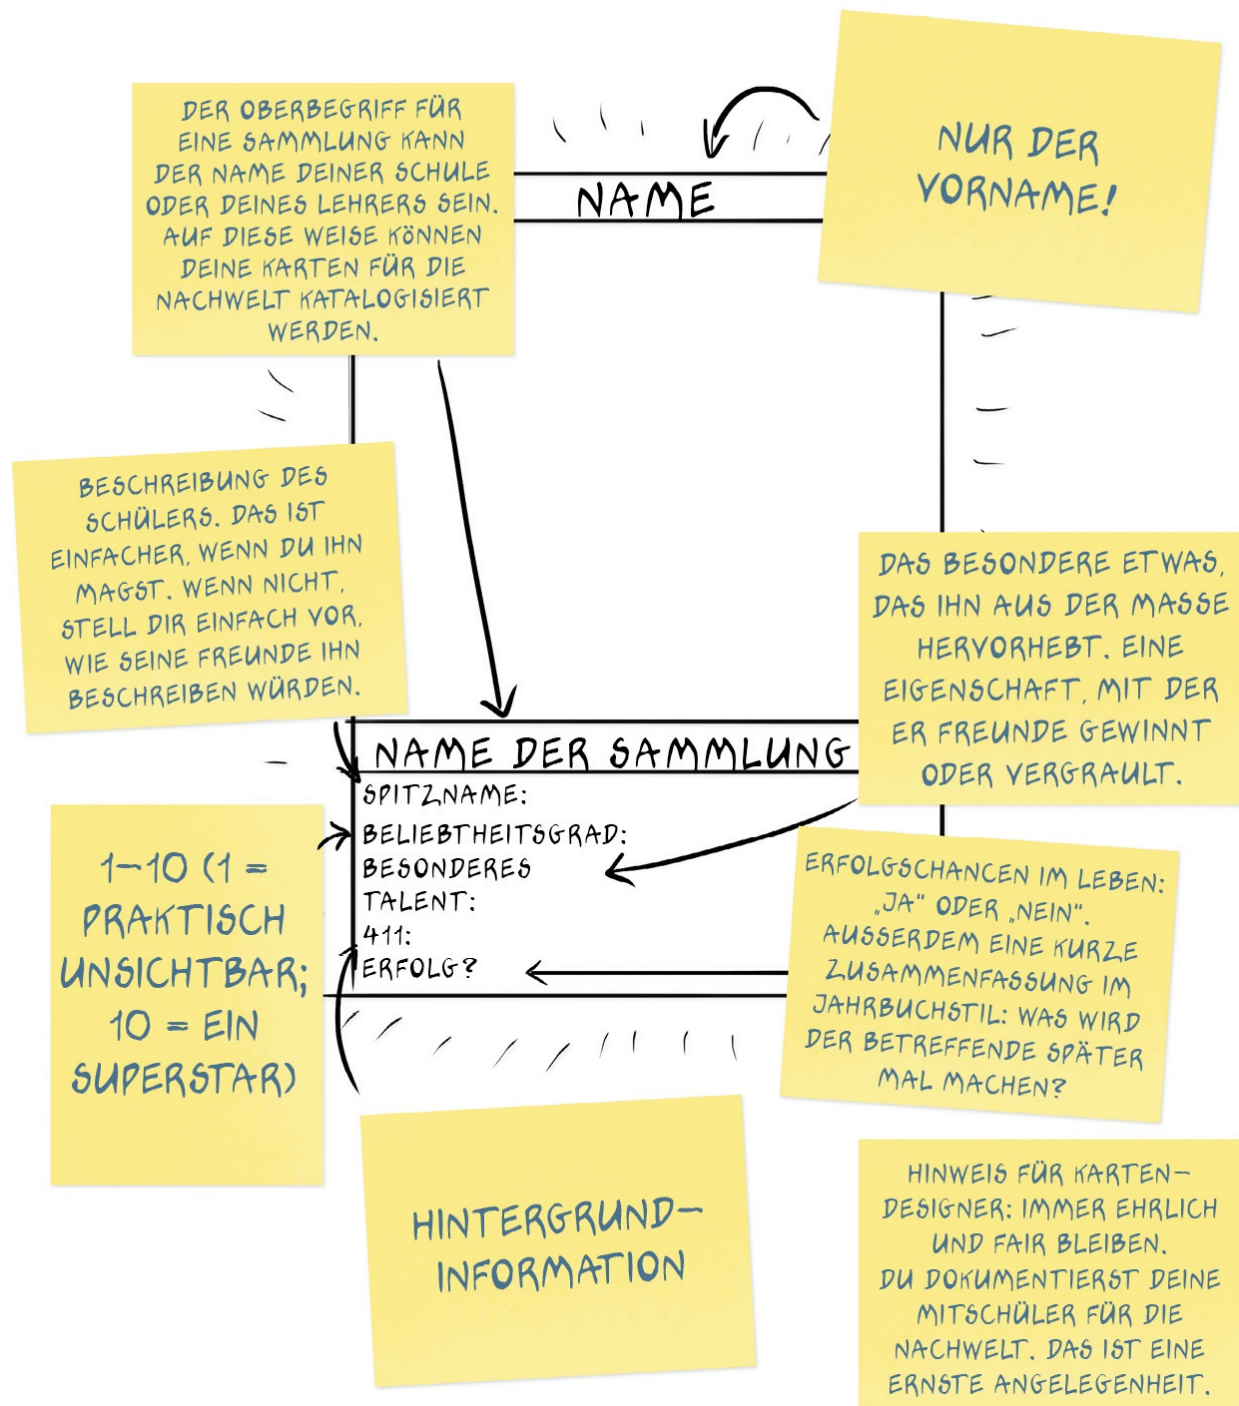 DER OBERBEGRIFF FÜR
EINE SAMMLUNG KANN
DER NAME DEINER SCHULE
ODER DEINES LEHRERS SEIN.
AUF DIESE WEISE KÖNNEN
DEINE KARTEN FÜR DIE
NACHWELT KATALOGISIERT
WERDEN.
NAME
NUR DER
VORNAME!
BESCHREIBUNG DES
SCHÜLERS. DAS IST
EINFACHER, WENN DU IHN
MAGST. WENN NICHT,
STELL DIR EINFACH VOR,
WIE SEINE FREUNDE IHN
BESCHREIBEN WÜRDEN.
DAS BESONDERE ETWAS,
DAS IHN AUS DER MASSE
HERVORHEBT. EINE
EIGENSCHAFT, MIT DER
ER FREUNDE GEWINNT
ODER VERGRAULT.
NAME DER SAMMLUNG
SPITZNAME:
BELIEBTHEITSGRAD:
BESONDERES
TALENT:
411:
ERFOLG?
1–10 (1 =
PRAKTISCH
UNSICHTBAR;
10 = EIN
SUPERSTAR)
ERFOLGSCHANCEN IM LEBEN:
„JA" ODER „NEIN".
AUSSERDEM EINE KURZE
ZUSAMMENFASSUNG IM
JAHRBUCHSTIL: WAS WIRD
DER BETREFFENDE SPÄTER
MAL MACHEN?
HINTERGRUND-
INFORMATION
HINWEIS FÜR KARTEN-
DESIGNER: IMMER EHRLICH
UND FAIR BLEIBEN.
DU DOKUMENTIERST DEINE
MITSCHÜLER FÜR DIE
NACHWELT. DAS IST EINE
ERNSTE ANGELEGENHEIT.